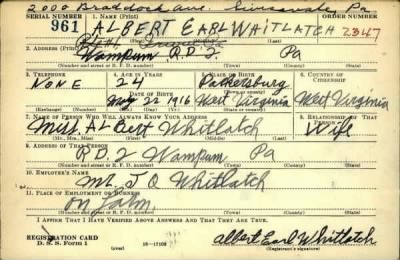 2000 Braddock Ave. Swissvale, Pa
SERIAL NUMBER 1. NAME (Print) ORDER NUMBER
961 ALBERT EARL WHITLATCH 2347
2. ADDRESS (Print)
Wampum R.D 2. Pa
(Number and street or R. F. D. number) (Town) (County) (State)
3. TELEPHONE 4. AGE IN YEARS 5. PLACE OF BIRTH 6. COUNTRY OF CITIZENSHIP
NONE 24 Parkersburg
DATE OF BIRTH
May 22 1916 West Virginia West Virginia
(Mo.) (Day) (Yr.) (State or country)
7. NAME OF PERSON WHO WILL ALWAYS KNOW YOUR ADDRESS 8. RELATIONSHIP OF THAT PERSON
Miss. Albert Whitlatch Wife
(Mr., Mrs., Miss) (First) (Middle) (Last)
9. ADDRESS OF THAT PERSON
R.D 2- Wampum Pa
(Number and street or R. F. D. number) (Town) (County) (State)
10. EMPLOYER'S NAME
Mr. J O Whitlatch
11. PLACE OF EMPLOYMENT OR BUSINESS
on Farm,
(Number and street or R. F. D. number) (Town) (County) (State)
I AFFIRM THAT I HAVE VERIFIED ABOVE ANSWERS AND THAT THEY ARE TRUE.
REGISTRATION CARD
D. S. S. Form 1 16-17105 Albert Earl Whitlatch
(Registrant's signature)